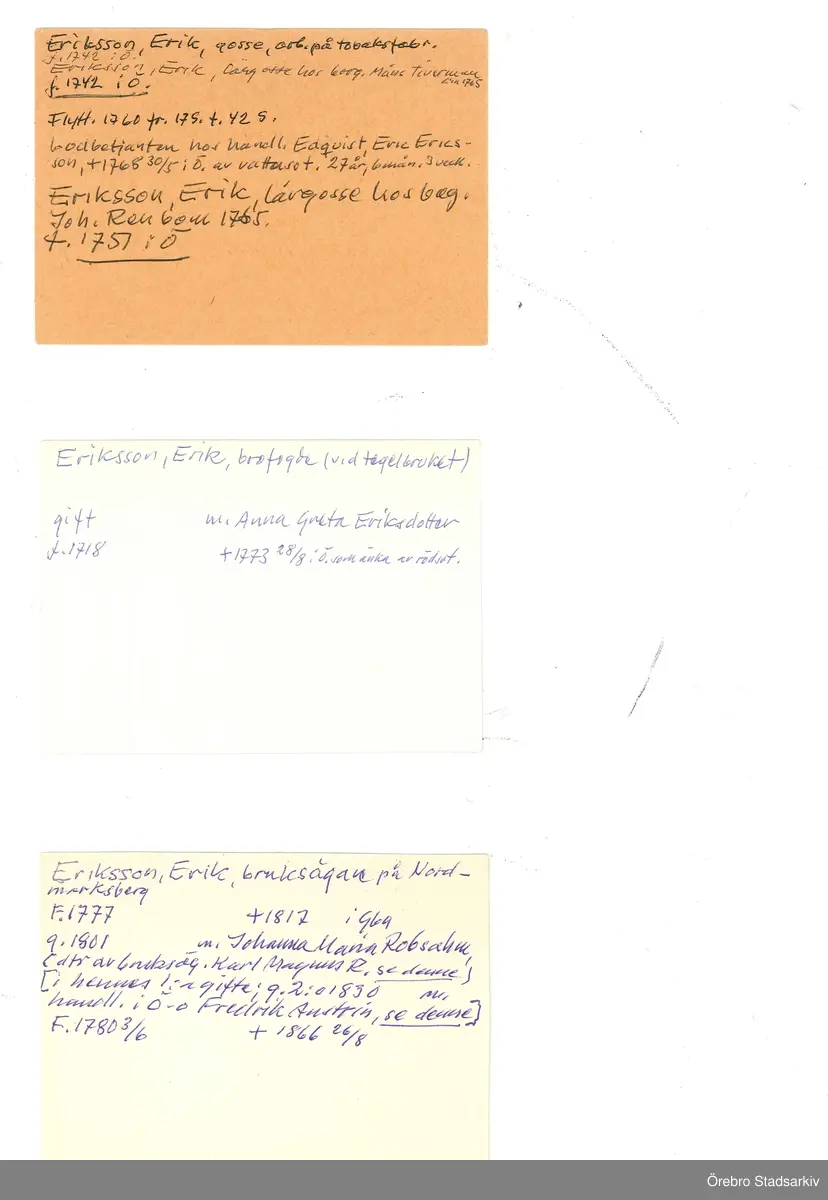 Eriksson, Erik, gosse, arb. på tobaksfabr.
f. 1742 i Ö.
Eriksson, Erik, lärgosse hos borg. Måns Tiverman
1765
f. 1742 i Ö.
Flytt. 1760 fr. 175. t. 42 S.
bodbetjänten hos handl. Edqvist, Eric Ericsson, +1768 30/5 i Ö. av vattusot. 27 år, 6 mån. 3 veck.
Eriksson, Erik, lärgosse hos bæg.
Joh. Renbom 1765.
f. 1751 i Ö
Eriksson, Erik, brofogde (vid tegelbruket)
gift m. Anna Greta Eriksdotter
f. 1718 +1773 28/8 i Ö. som änka av rödsot.
Eriksson, Erik, bruksägare på Nord-
marksberg
F. 1777 +1817 i Gbg
g. 1801 m. Johanna Maria Robsahm,
(dtr av bruksäg. Karl Magnus R. se denne)
[i hennes 1:a gifte; g. 2:o 1830 m.
handl. i Ö-o Fredrik Austrin, se denne]
F. 1780 3/6 + 1866 26/8
Örebro Stadsarkiv